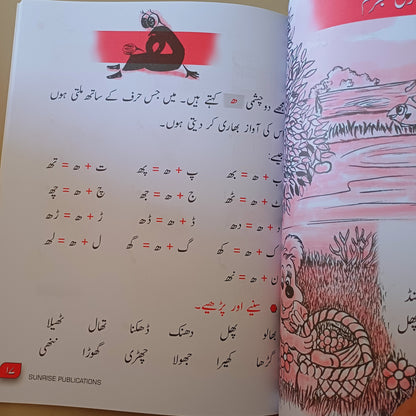 مجھے دو چشمی ھ کہتے ہیں۔ میں جس حرف کے ساتھ ملتی ہوں
اس کی آواز بھاری کر دیتی ہوں۔
ب + ھ = بھ پ + ھ = پھ ت + ھ = تھ
ٹ + ھ = ٹھ ج + ھ = جھ چ + ھ = چھ
د + ھ = دھ ڈ + ھ = ڈھ ڑ + ھ = ڑھ
ک + ھ = کھ گ + ھ = گھ ل + ھ = لھ
ن + ھ = نھ
سنیے اور پڑھیے۔
بھالو پھل دھنک ڈھکنا تھال ٹھیلا
گڑھا کھیرا جھولا چھڑی گھوڑا ننھی
۱۷
SUNRISE PUBLICATIONS
پھل